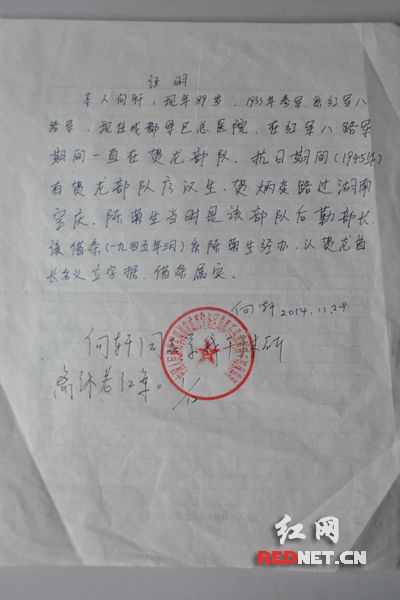 证明
本人向轩，现年89岁，1935年参军，系红军八
路军，现住成都军区总医院，在红军八路军
期间一直在贺龙部队。抗日期间（1945年）
有贺龙部队廖汉生、贺炳炎路过湖南
宝庆。陈菊生当时是该部队后勤部长，
该借条（一九四五年）系陈菊生经办，以贺龙首
长名义立字据，借条属实。
向轩 2014.11.29
向轩同
离休老红军。
红网
REDNET.CN